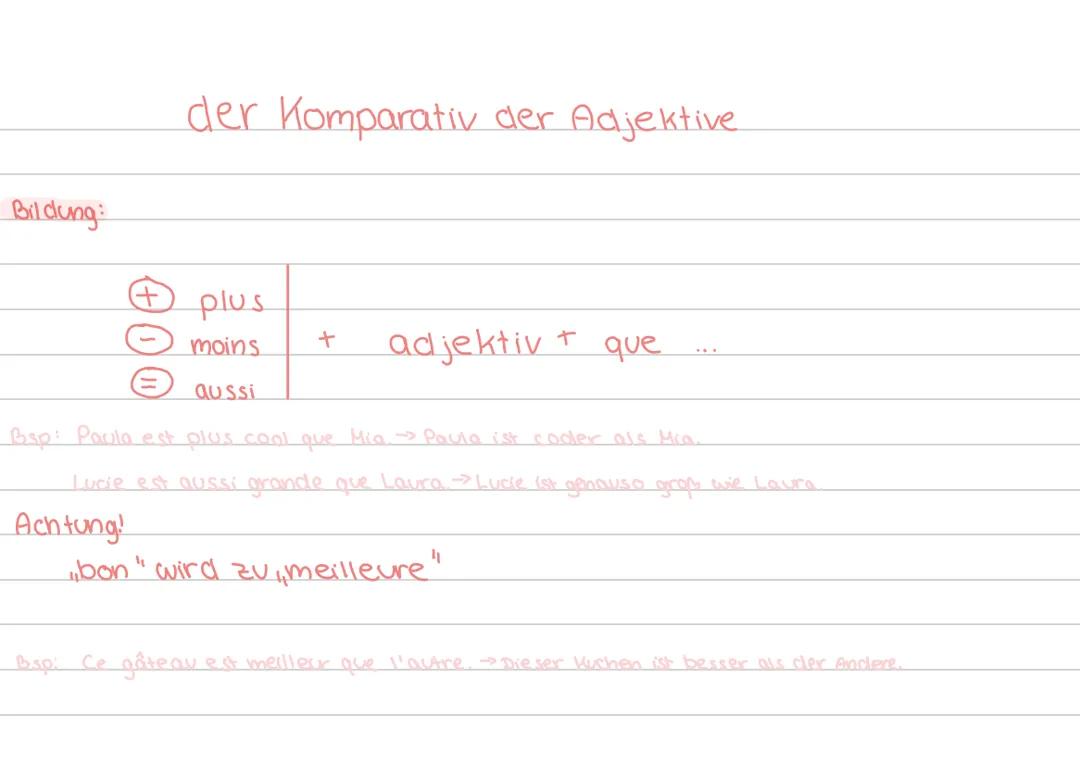 der Komparativ der Adjektive
Bildung:
+ plus
- moins + adjektiv + que ...
= aussi
Bsp: Paula est plus cool que Mia. → Paula ist cooler als Mia.
Lucie est aussi grande que Laura. → Lucie ist genauso groß wie Laura.
Achtung!
„bon" wird zu „meilleure"
Bsp: Ce gâteau est meilleur que l'autre. → Dieser Kuchen ist besser als der Andere.